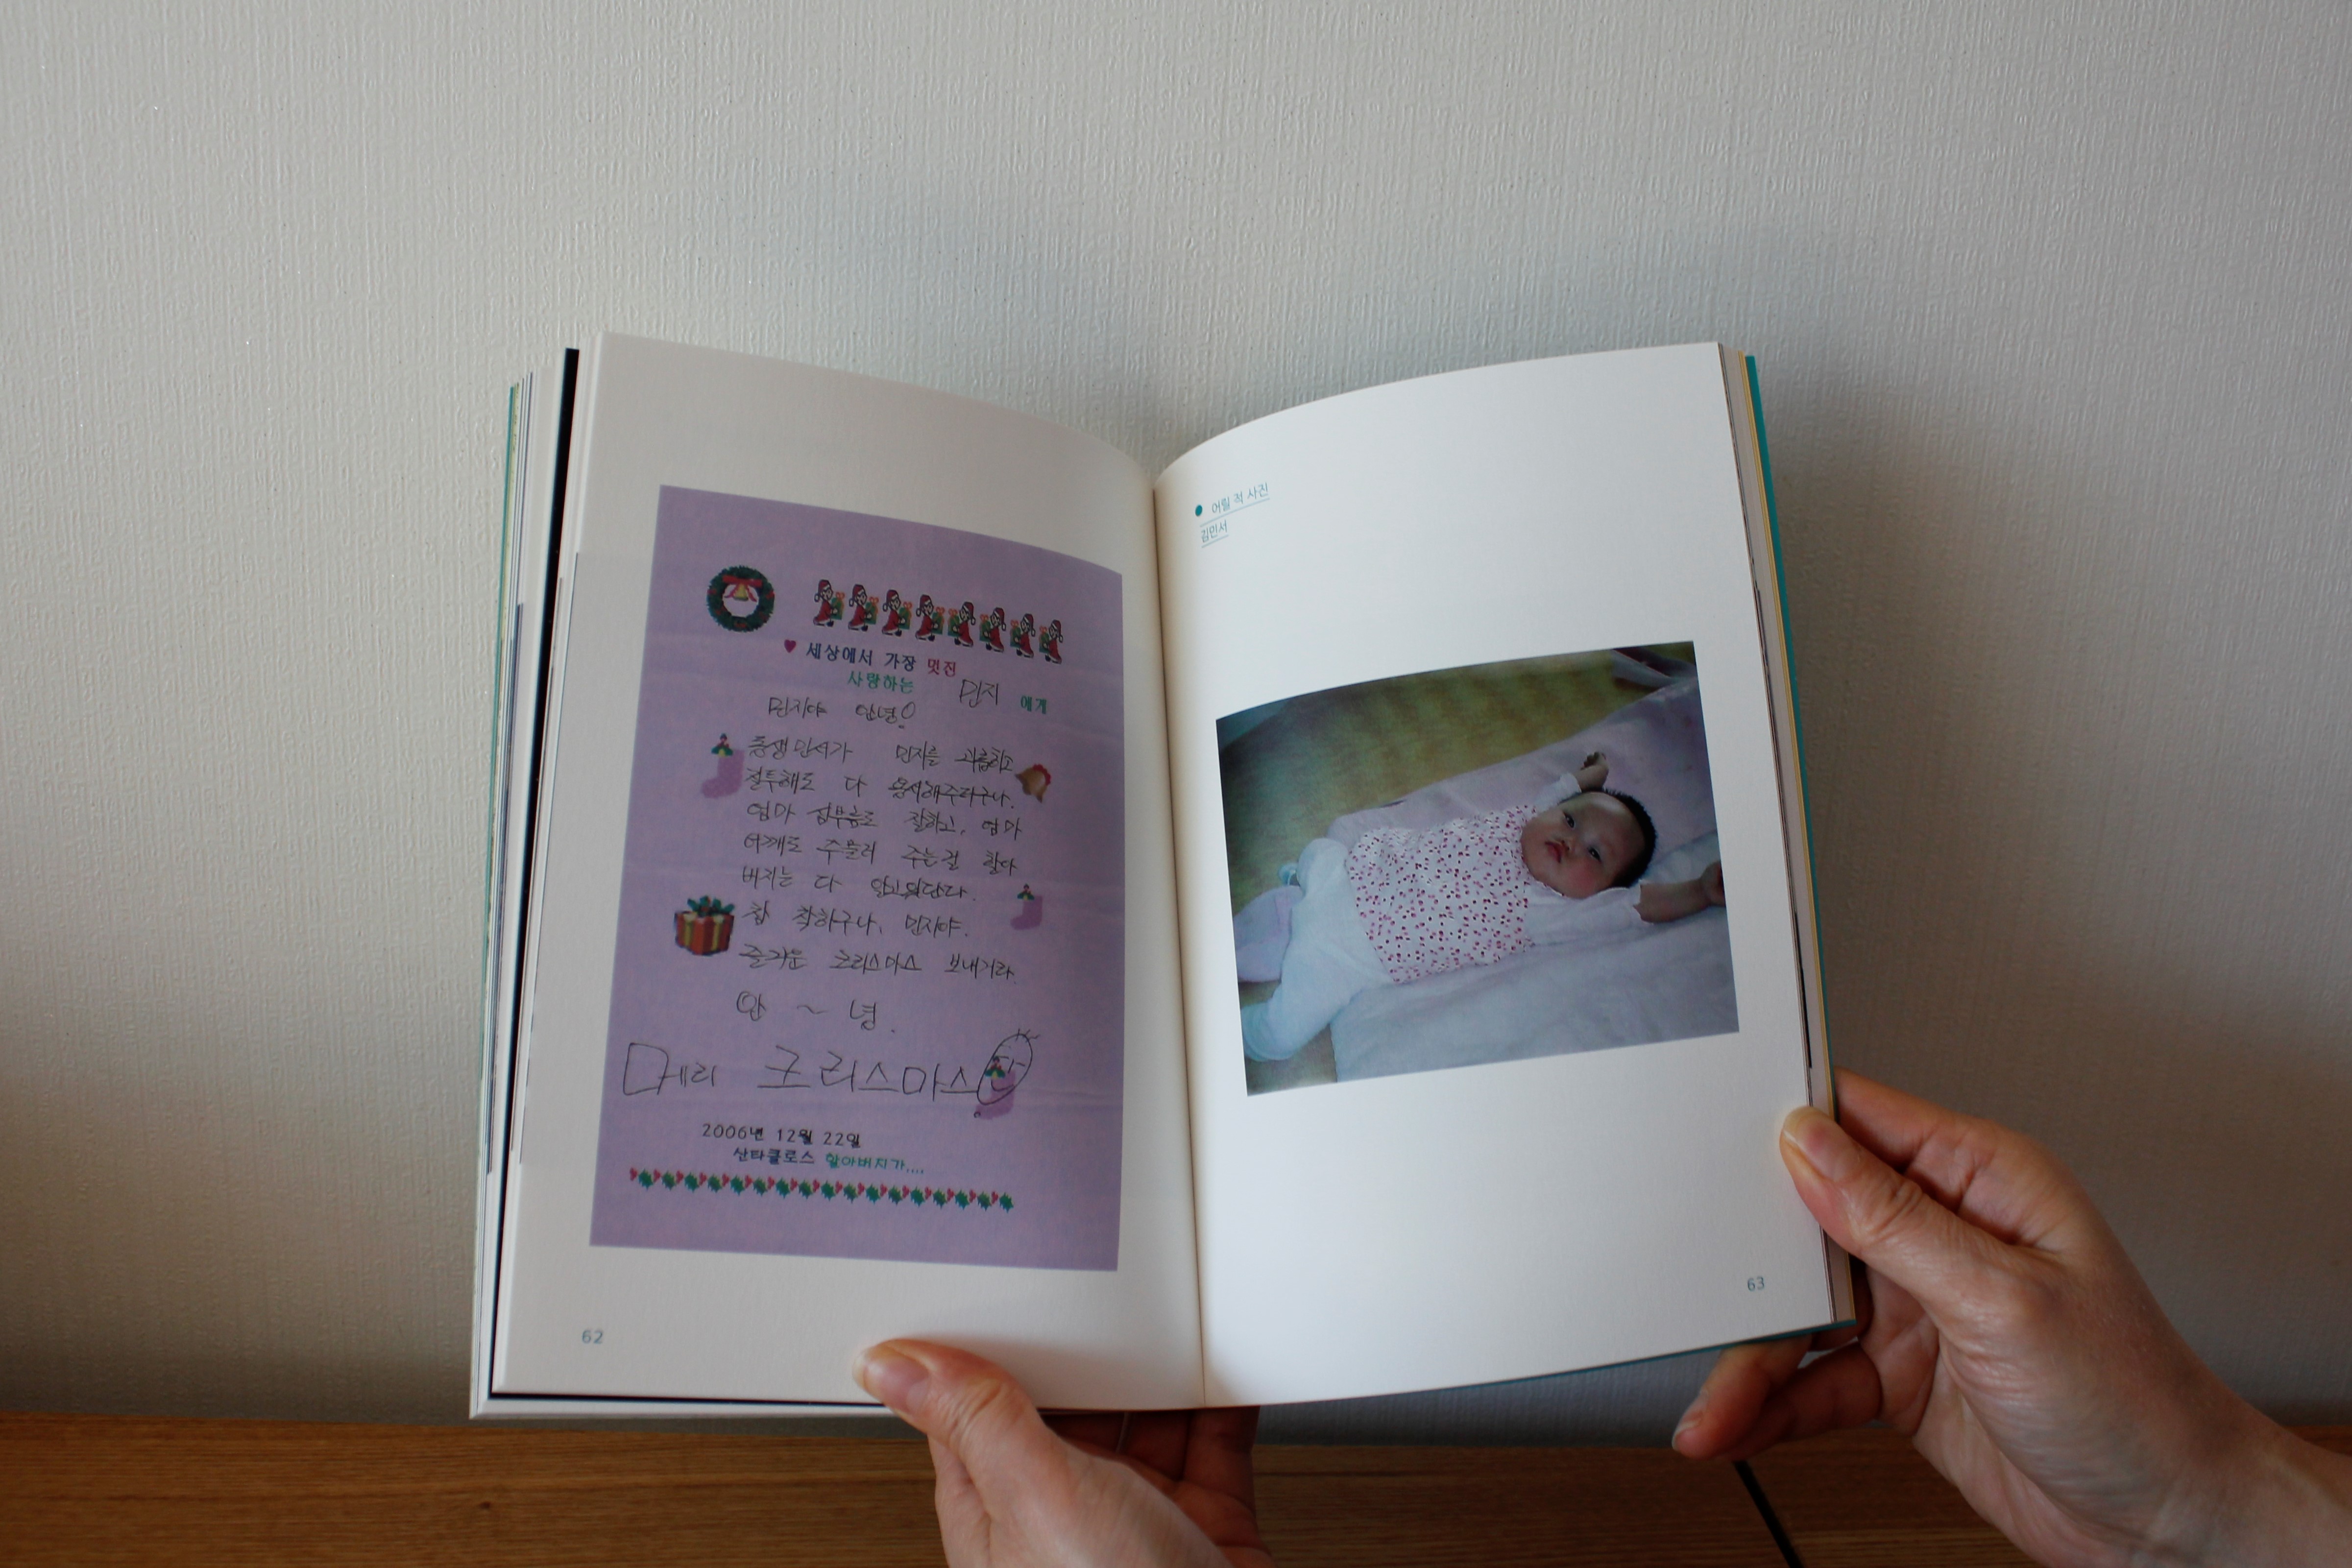 세상에서 가장 멋진
사랑하는 민지 에게
민지야 안녕!
동생 민서가 민지를 괴롭히고
질투해도 다 용서해주더구나.
엄마 심부름도 잘하고, 엄마
어깨도 주물러 주는걸 할아
버지는 다 알고있단다.
참 착하구나, 민지야.
즐거운 크리스마스 보내거라.
안 ~ 녕.
메리 크리스마스
2006년 12월 22일
산타클로스 할아버지가....
62
어릴 적 사진
김민서
63